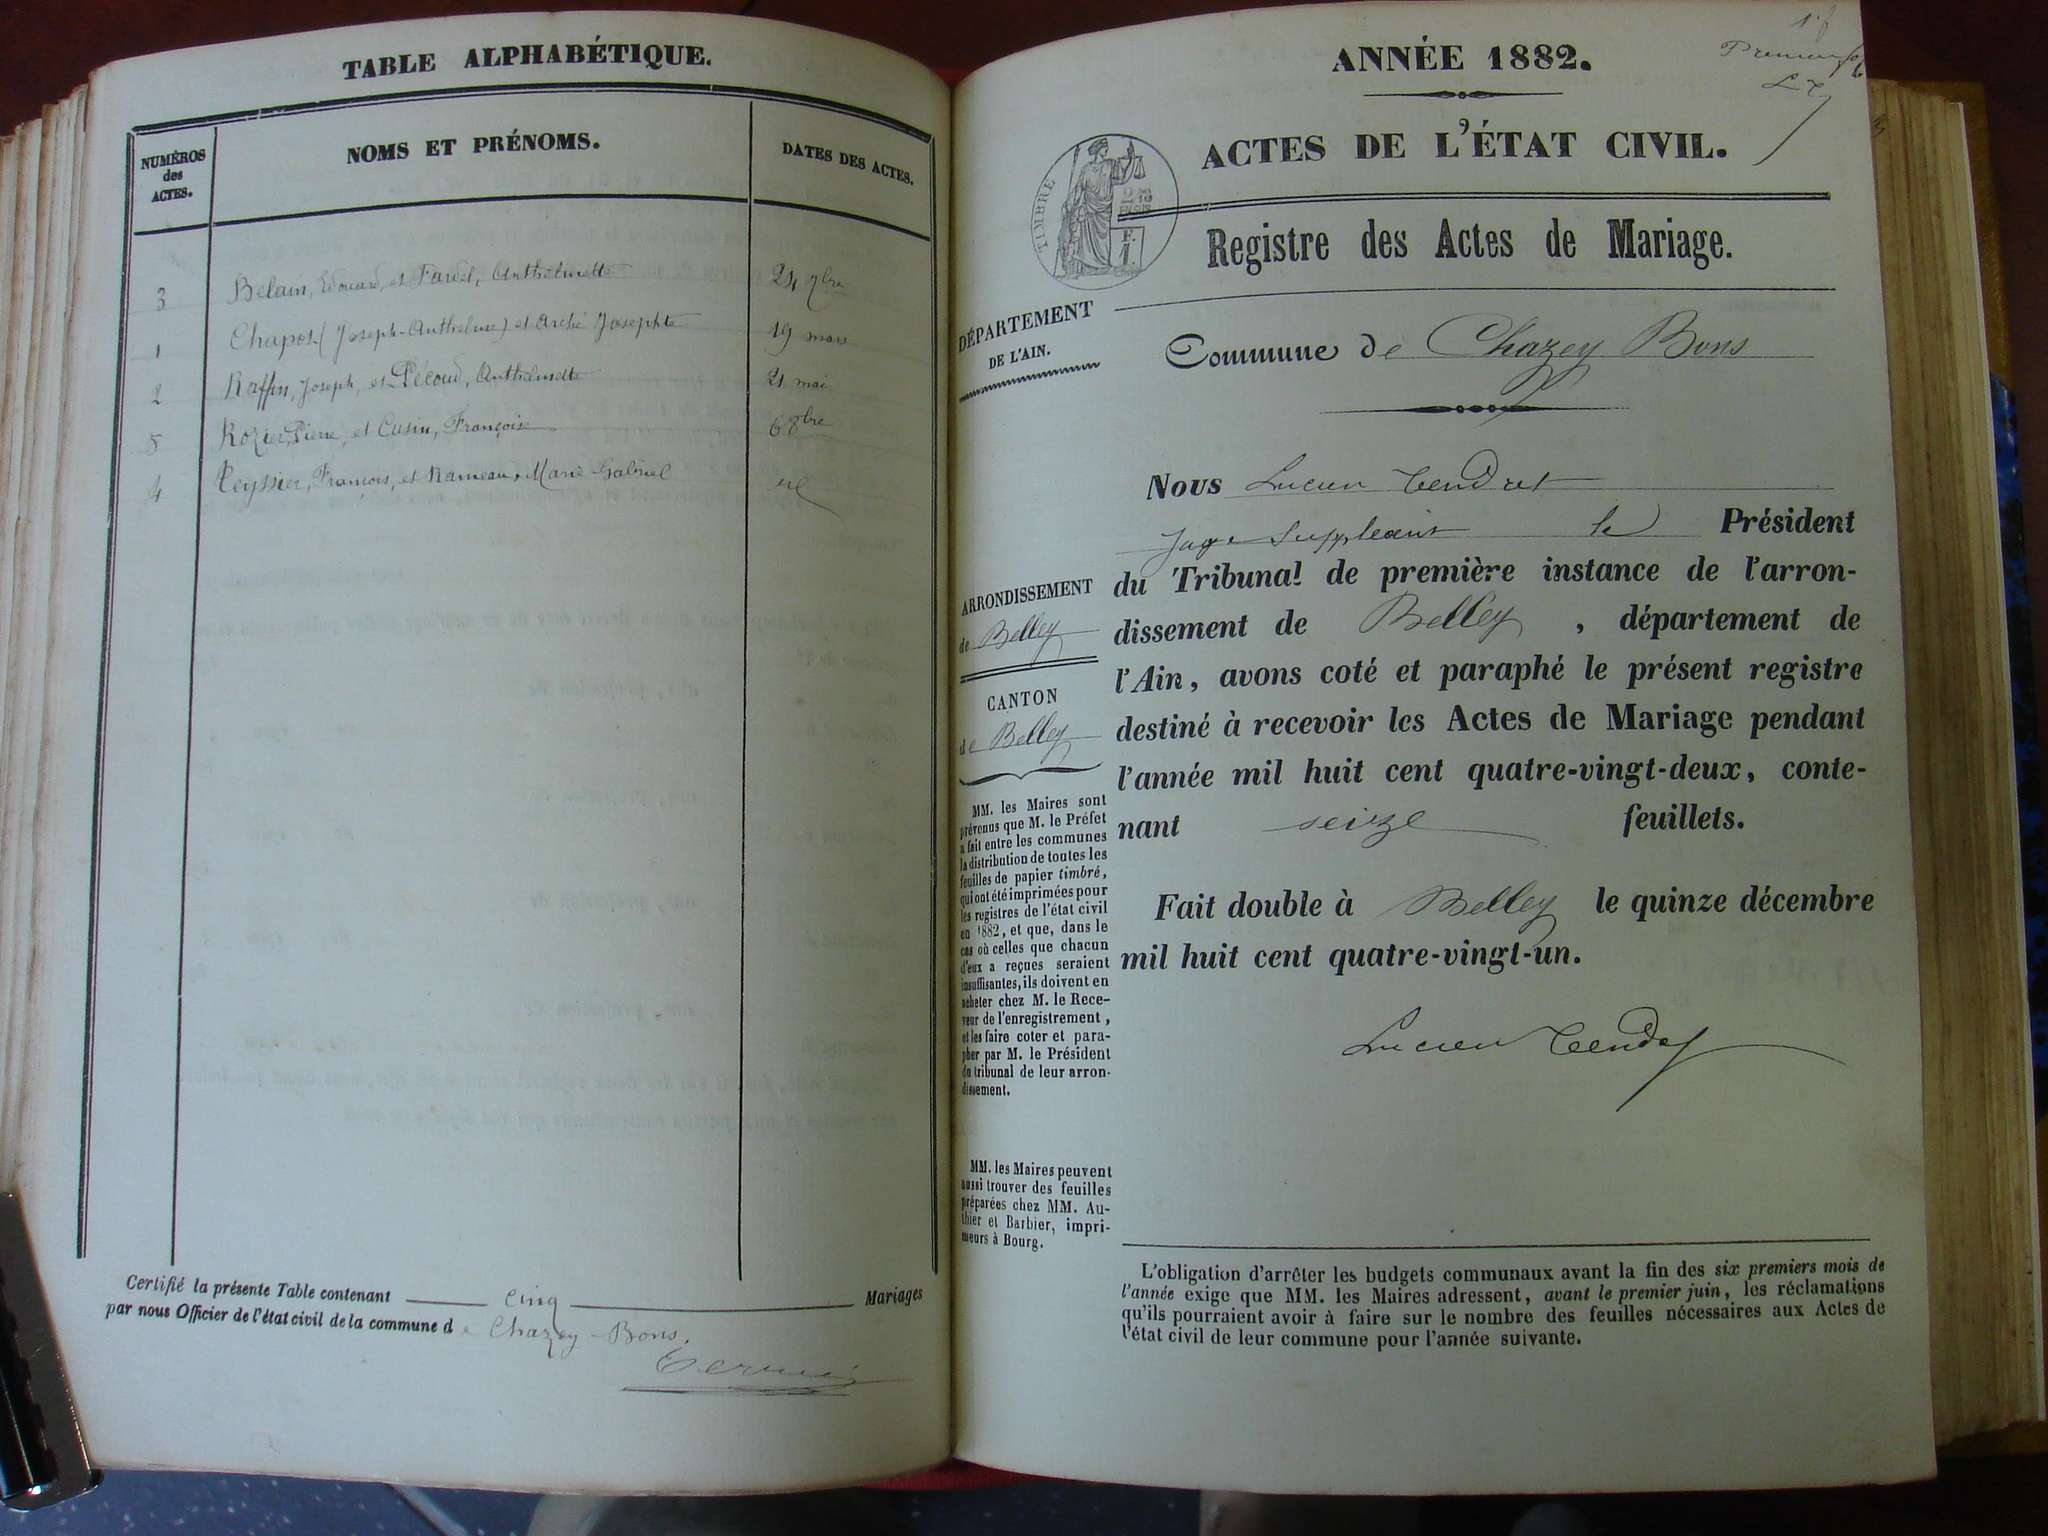 TABLE ALPHABÉTIQUE.
NUMÉROS des ACTES.
NOMS ET PRÉNOMS.
DATES DES ACTES.
3 Belain, Edouard, et Fardel, Anthelmette 24 7bre
1 Chapot (Joseph-Anthelme) et Arché Josephte 19 mars
2 Raffin, Joseph, et Pécoud, Anthelmette 21 mai
5 Rozier, Pierre, et Cusin, Françoise 6 8bre
4 Teyssier, François, et Rameau, Marie Gabriel
Certifié la présente Table contenant cinq Mariages
par nous Officier de l'état civil de la commune de Chazey-Bons.
ANNÉE 1882.
ACTES DE L'ÉTAT CIVIL.
TIMBRE
Registre des Actes de Mariage.
DÉPARTEMENT
DE L'AIN.
Commune de Chazey Bons
Nous Lucien Tendret
Juge Suppléant le Président
du Tribunal de première instance de l'arron-
dissement de Belley, département de
l'Ain, avons coté et paraphé le présent registre
destiné à recevoir les Actes de Mariage pendant
l'année mil huit cent quatre-vingt-deux, conte-
nant seize feuillets.
Fait double à Belley le quinze décembre
mil huit cent quatre-vingt-un.
Lucien Tendret
ARRONDISSEMENT
de Belley
CANTON
de Belley
MM. les Maires sont
prévenus que M. le Préfet
a fait entre les communes
la distribution de toutes les
feuilles de papier timbré,
qui ont été imprimées pour
les registres de l'état civil
en 1882, et que, dans le
cas où celles que chacun
d'eux a reçues seraient
insuffisantes, ils doivent en
acheter chez M. le Rece-
veur de l'enregistrement,
et les faire coter et para-
pher par M. le Président
du tribunal de leur arron-
dissement.
MM. les Maires peuvent
aussi trouver des feuilles
préparées chez MM. Au-
thier et Barbier, impri-
meurs à Bourg.
L'obligation d'arrêter les budgets communaux avant la fin des six premiers mois de
l'année exige que MM. les Maires adressent, avant le premier juin, les réclamations
qu'ils pourraient avoir à faire sur le nombre des feuilles nécessaires aux Actes de
l'état civil de leur commune pour l'année suivante.